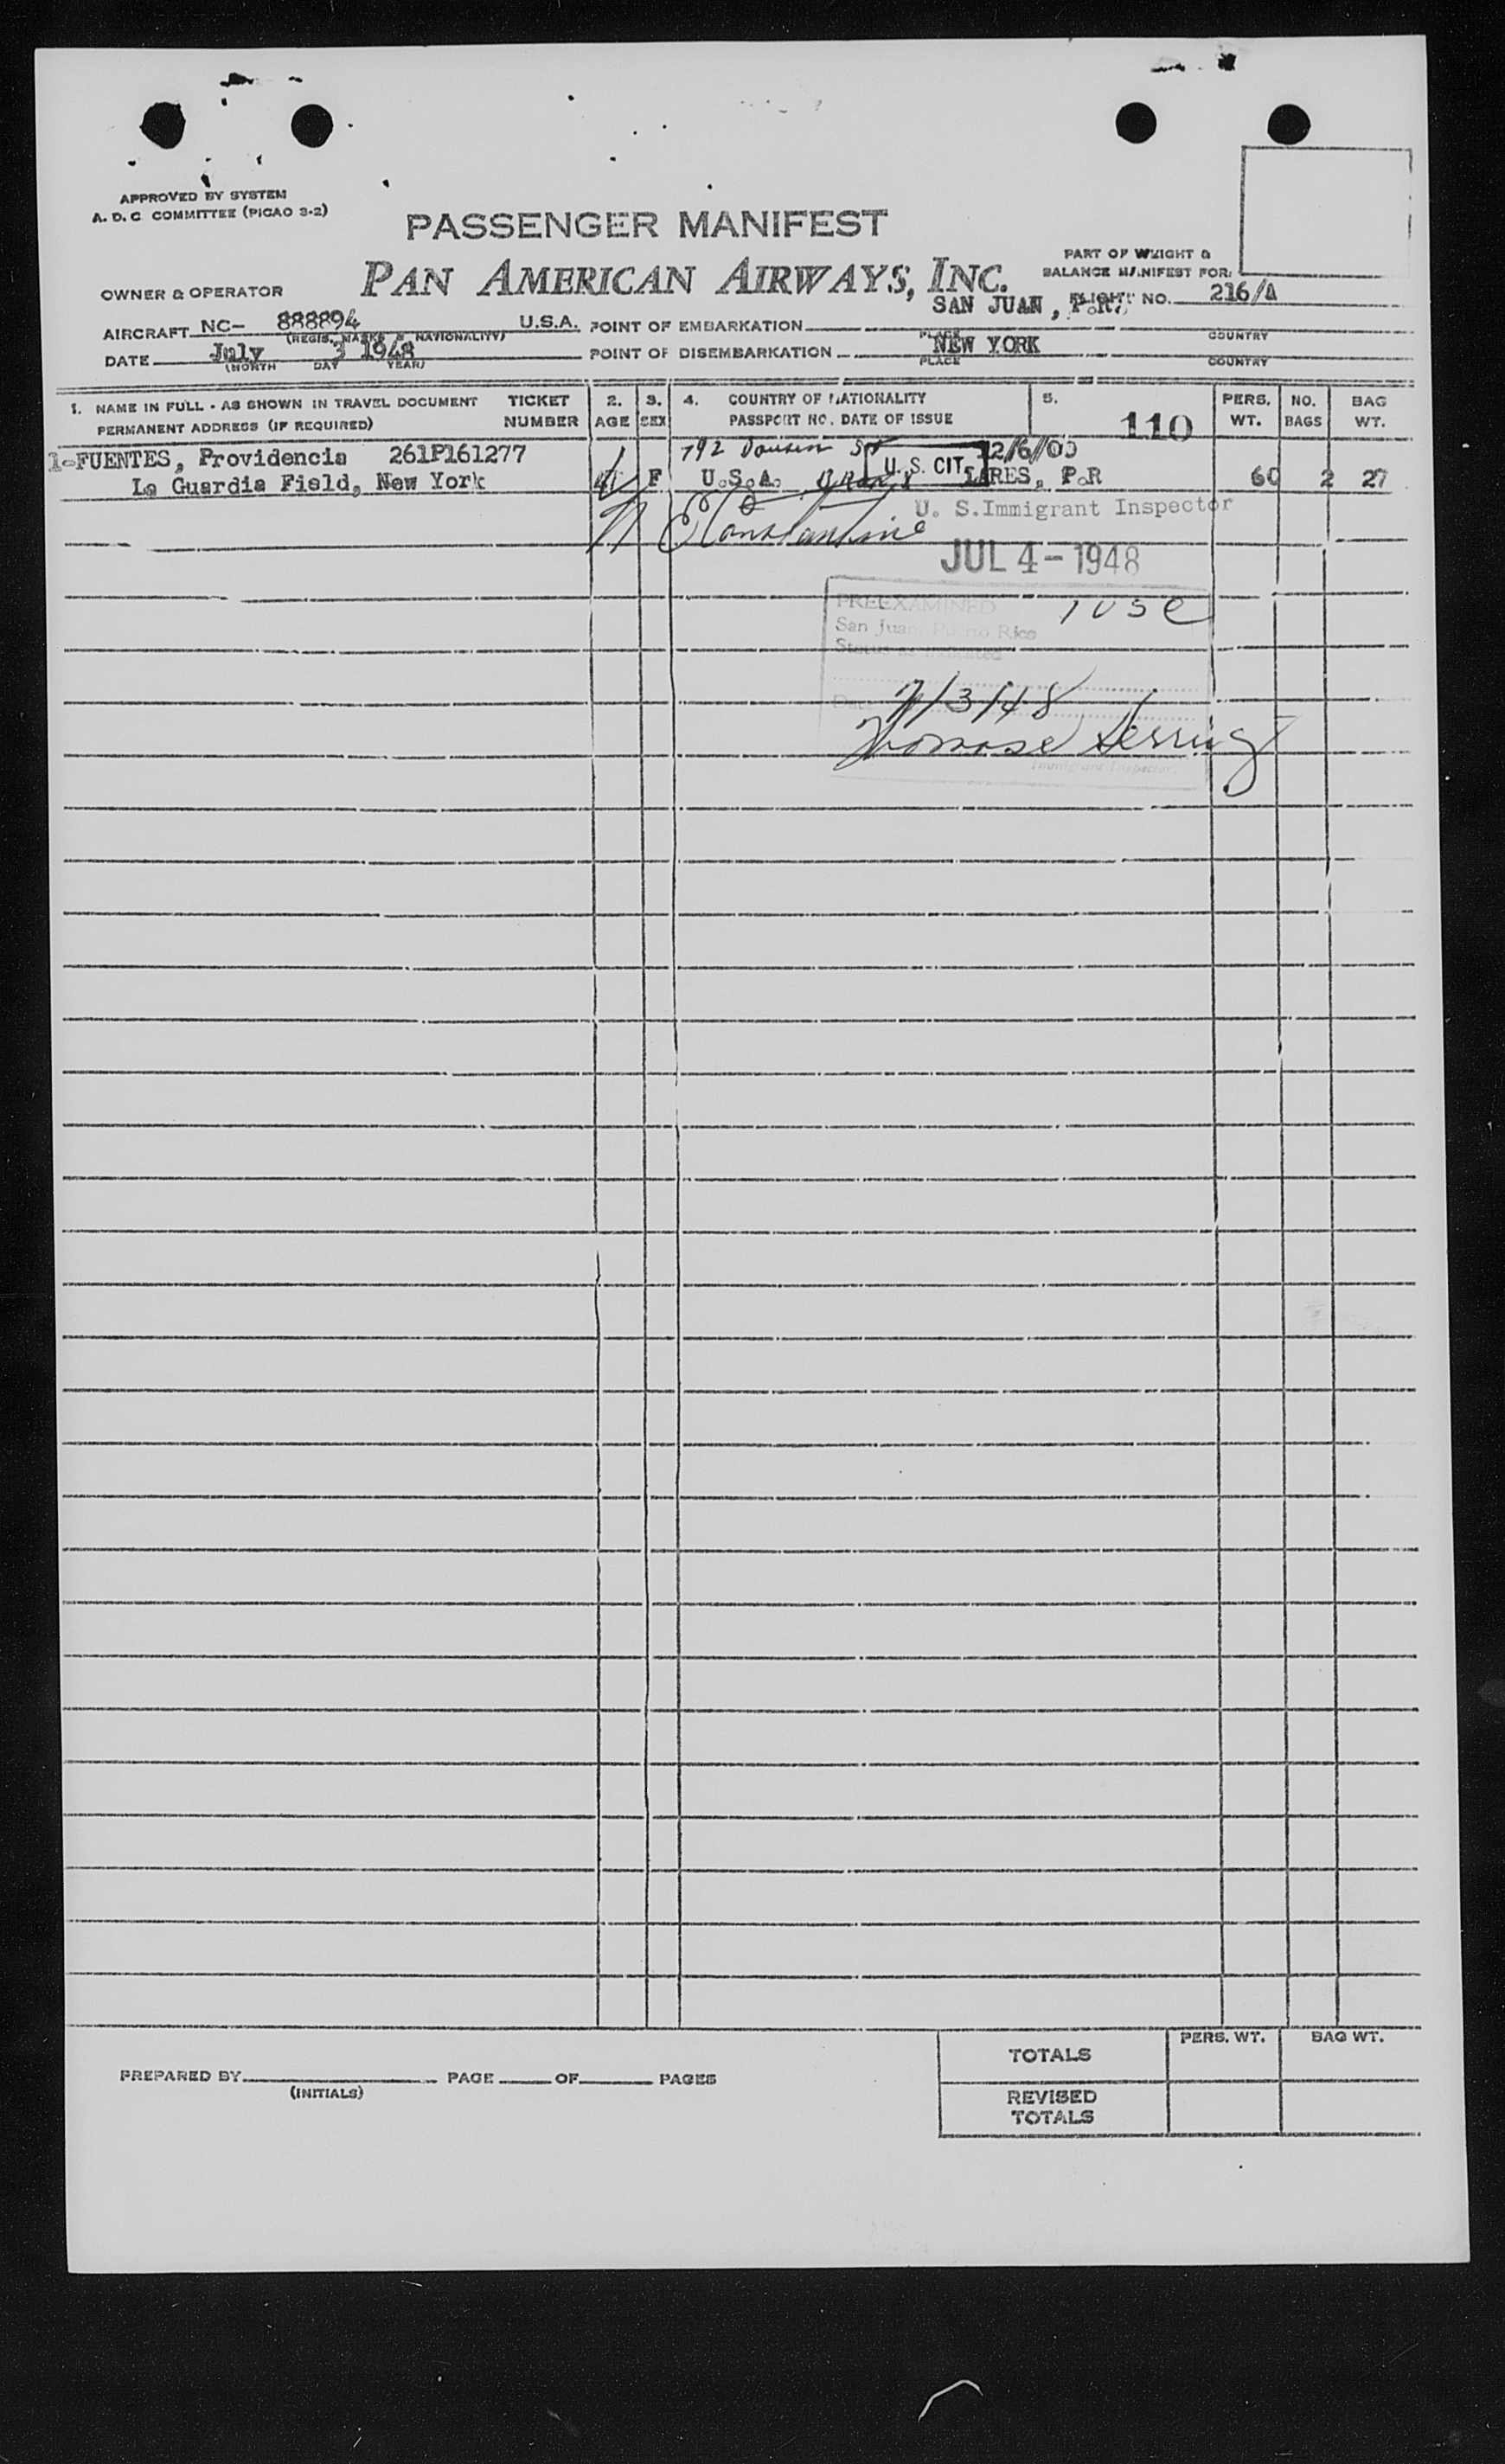 APPROVED BY SYSTEM
A. D. C. COMMITTEE (PICAO 3-2)
PASSENGER MANIFEST
PAN AMERICAN AIRWAYS, INC.
PART OF WEIGHT &
BALANCE MANIFEST FOR:
FLIGHT NO. 216/A
OWNER & OPERATOR
SAN JUAN, P.R.
AIRCRAFT NC- 888894 U.S.A. POINT OF EMBARKATION
(REGIS. MARKS & NATIONALITY) PLACE COUNTRY
DATE July 3 1948 POINT OF DISEMBARKATION NEW YORK
(MONTH DAY YEAR) PLACE COUNTRY
1. NAME IN FULL - AS SHOWN IN TRAVEL DOCUMENT TICKET 2. 3. 4. COUNTRY OF NATIONALITY 5. PERS. NO. BAG
PERMANENT ADDRESS (IF REQUIRED) NUMBER AGE SEX PASSPORT NO. DATE OF ISSUE 110 WT. BAGS WT.
1-FUENTES, Providencia 261P161277 792 St 12/6/00
La Guardia Field, New York F U.S.A. U. S. CIT. LARES, P.R 60 2 27
E Constantine U. S. Immigrant Inspector
JUL 4 - 1948
PREEXAMINED 1 USC
San Juan, Puerto Rico
Status as indicated
Date 7/3/48
Immigrant Inspector.
PREPARED BY PAGE OF PAGES
(INITIALS)
PERS. WT. BAG WT.
TOTALS
REVISED
TOTALS